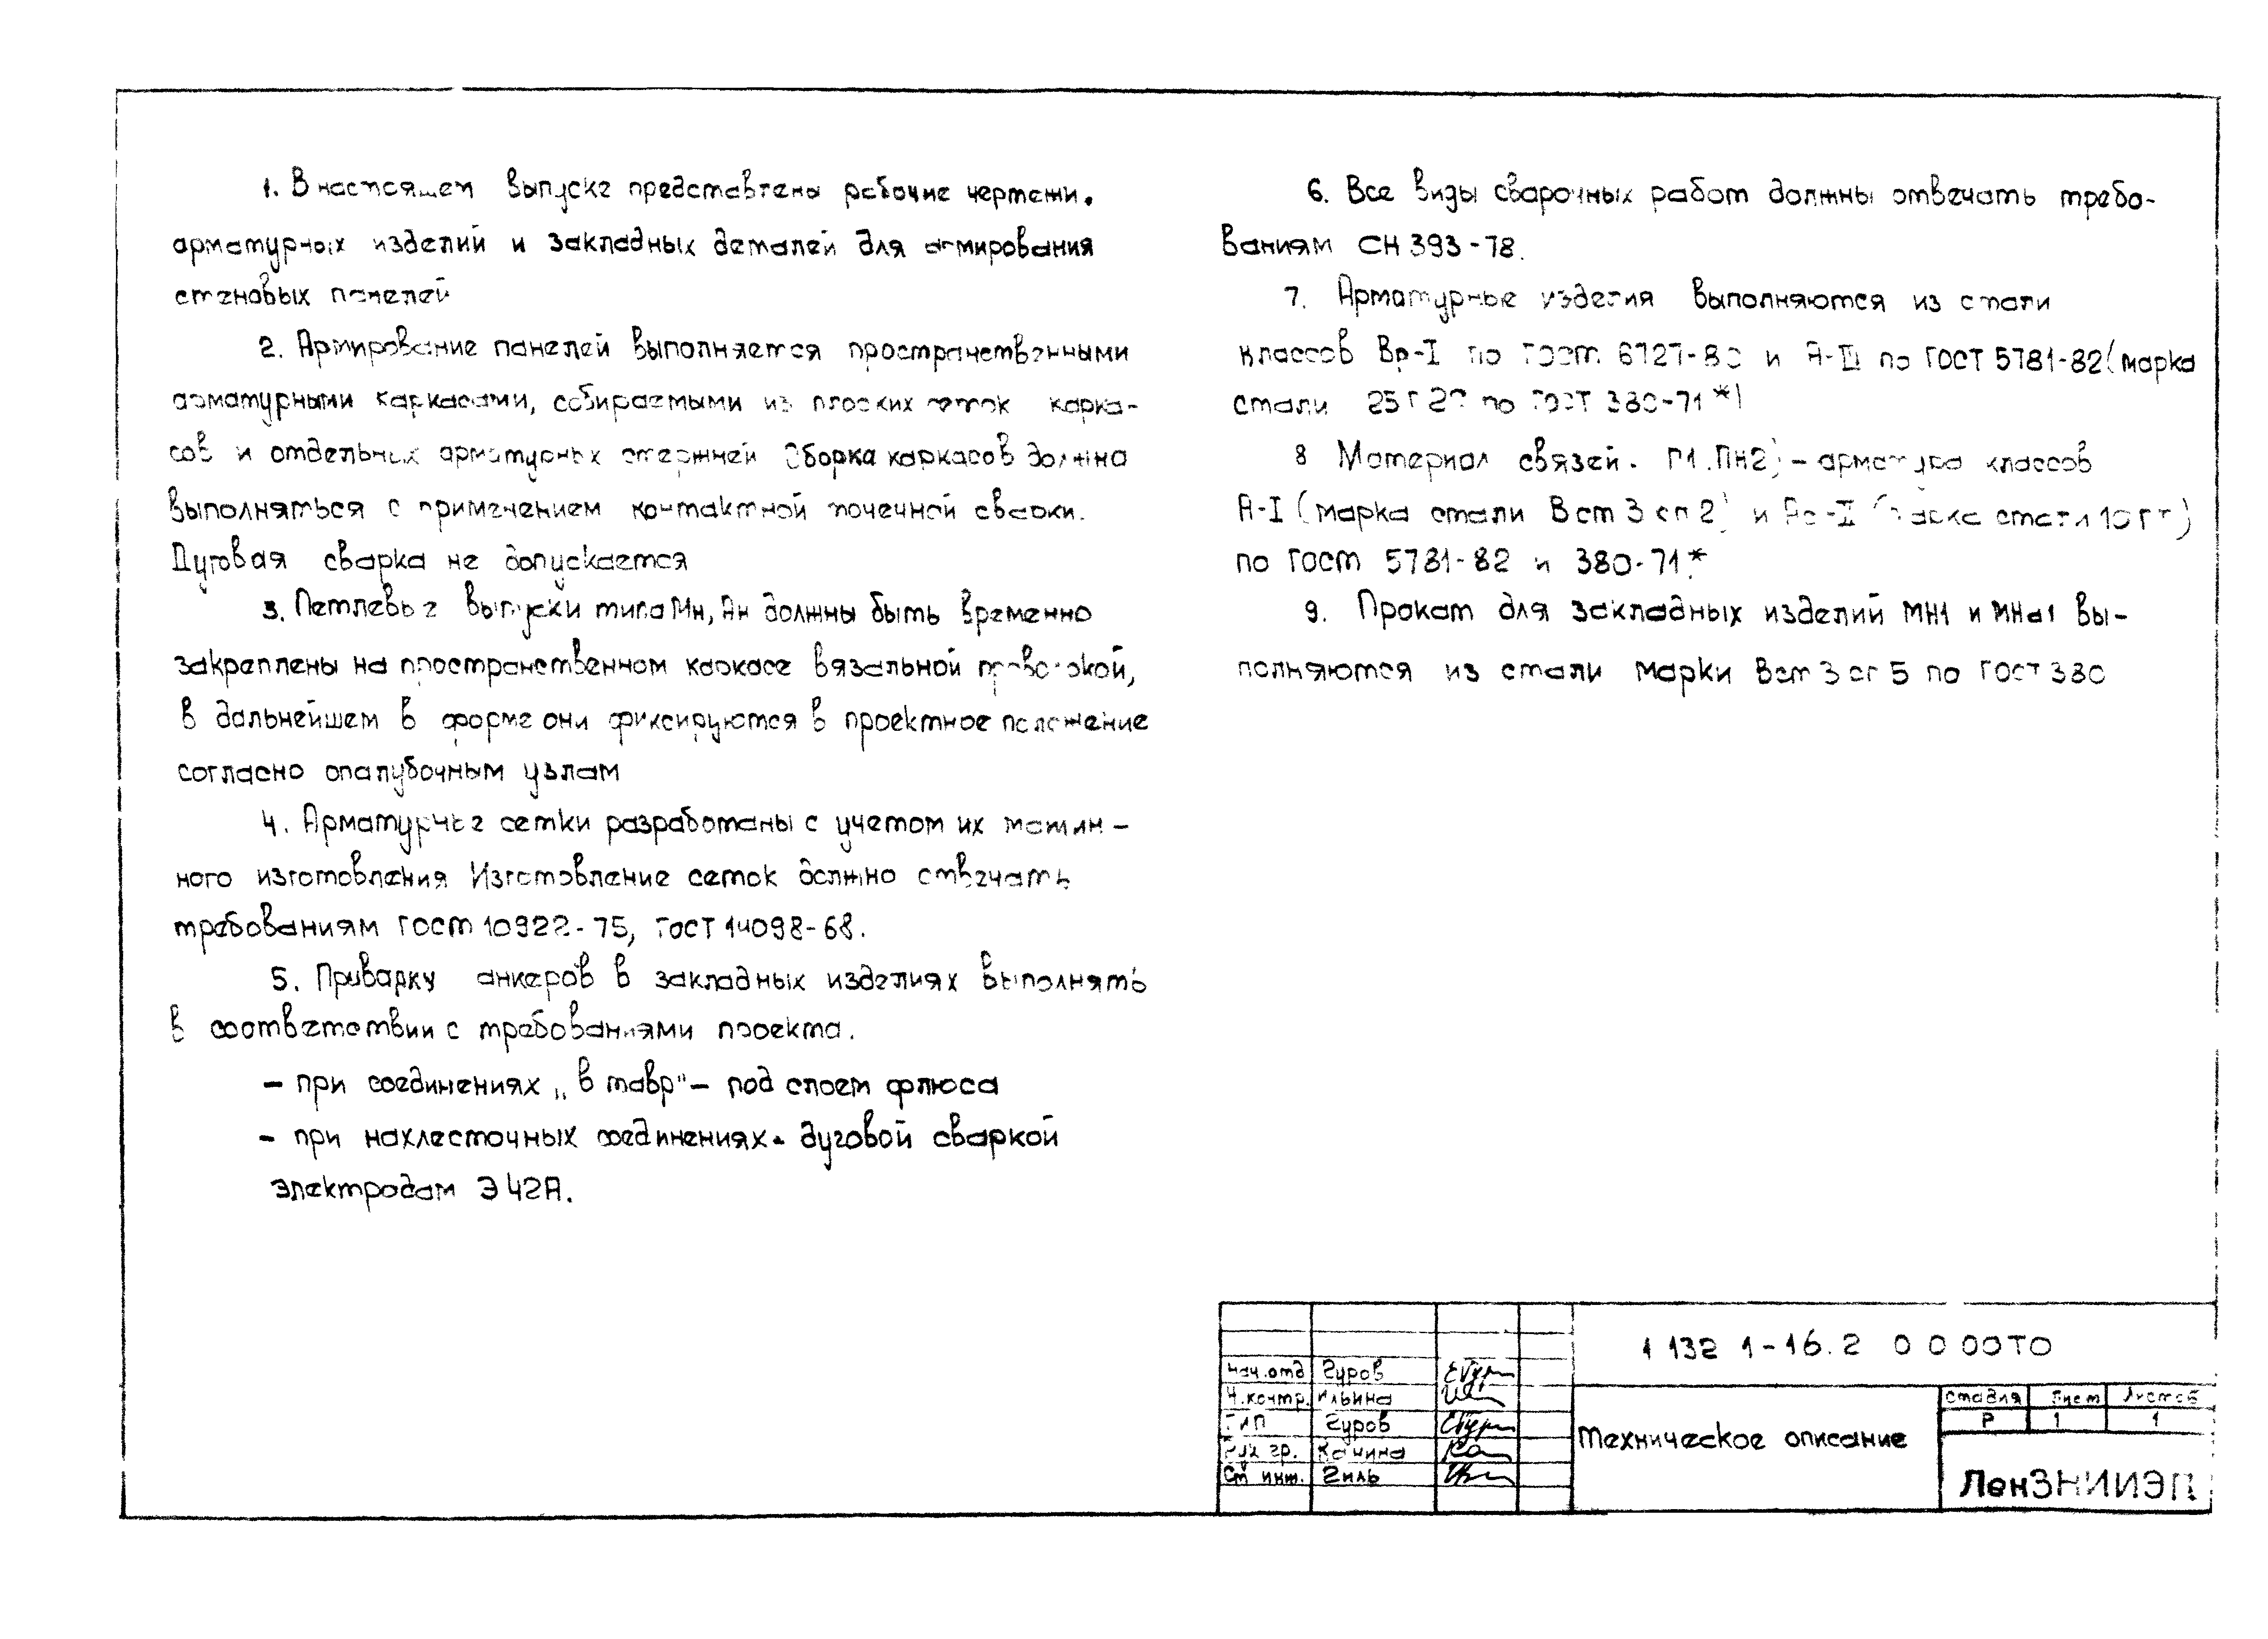 1. В настоящем выпуске представлены рабочие чертежи
арматурных изделий и закладных деталей для армирования
стеновых панелей
2. Армирование панелей выполняется пространственными
арматурными каркасами, собираемыми из плоских сеток карка-
сов и отдельных арматурных стержней Сборка каркасов должна
выполняться с применением контактной точечной сварки.
Дуговая сварка не допускается
3. Петлевые выпуски типа Мн, Ан должны быть временно
закреплены на пространственном каркасе вязальной проволокой,
в дальнейшем в форме они фиксируются в проектное положение
согласно опалубочным узлам
4. Арматурные сетки разработаны с учетом их машин-
ного изготовления Изготовление сеток должно отвечать
требованиям ГОСТ 10922-75, ГОСТ 14098-68.
5. Приварку анкеров в закладных изделиях выполнять
в соответствии с требованиями проекта.
- при соединениях „в тавр" - под слоем флюса
- при нахлесточных соединениях - дуговой сваркой
электродам Э42А.
6. Все виды сварочных работ должны отвечать требо-
ваниям СН 393-78.
7. Арматурные изделия выполняются из стали
классов Вр-I по ГОСТ 6727-80 и А-III по ГОСТ 5781-82 (марка
стали 25Г2С по ГОСТ 380-71*)
8 Материал связей. - арматура классов
А-I (марка стали Вст 3 сп 2) и Ас-II (марка стали 10ГТ)
по ГОСТ 5781-82 и 380-71*
9. Прокат для закладных изделий МН1 и МНа1 вы-
полняются из стали марки Вст 3 сп 5 по ГОСТ 380
1 132 1-16.2 0 0 00ТО
Нач.отд Гуров
Н.контр. Ильина
ГИП Гуров
Рук гр. Канина
Ст инж. Гиль
Техническое описание
стадия Лист Листов
Р 1 1
ЛенЗНИИЭП